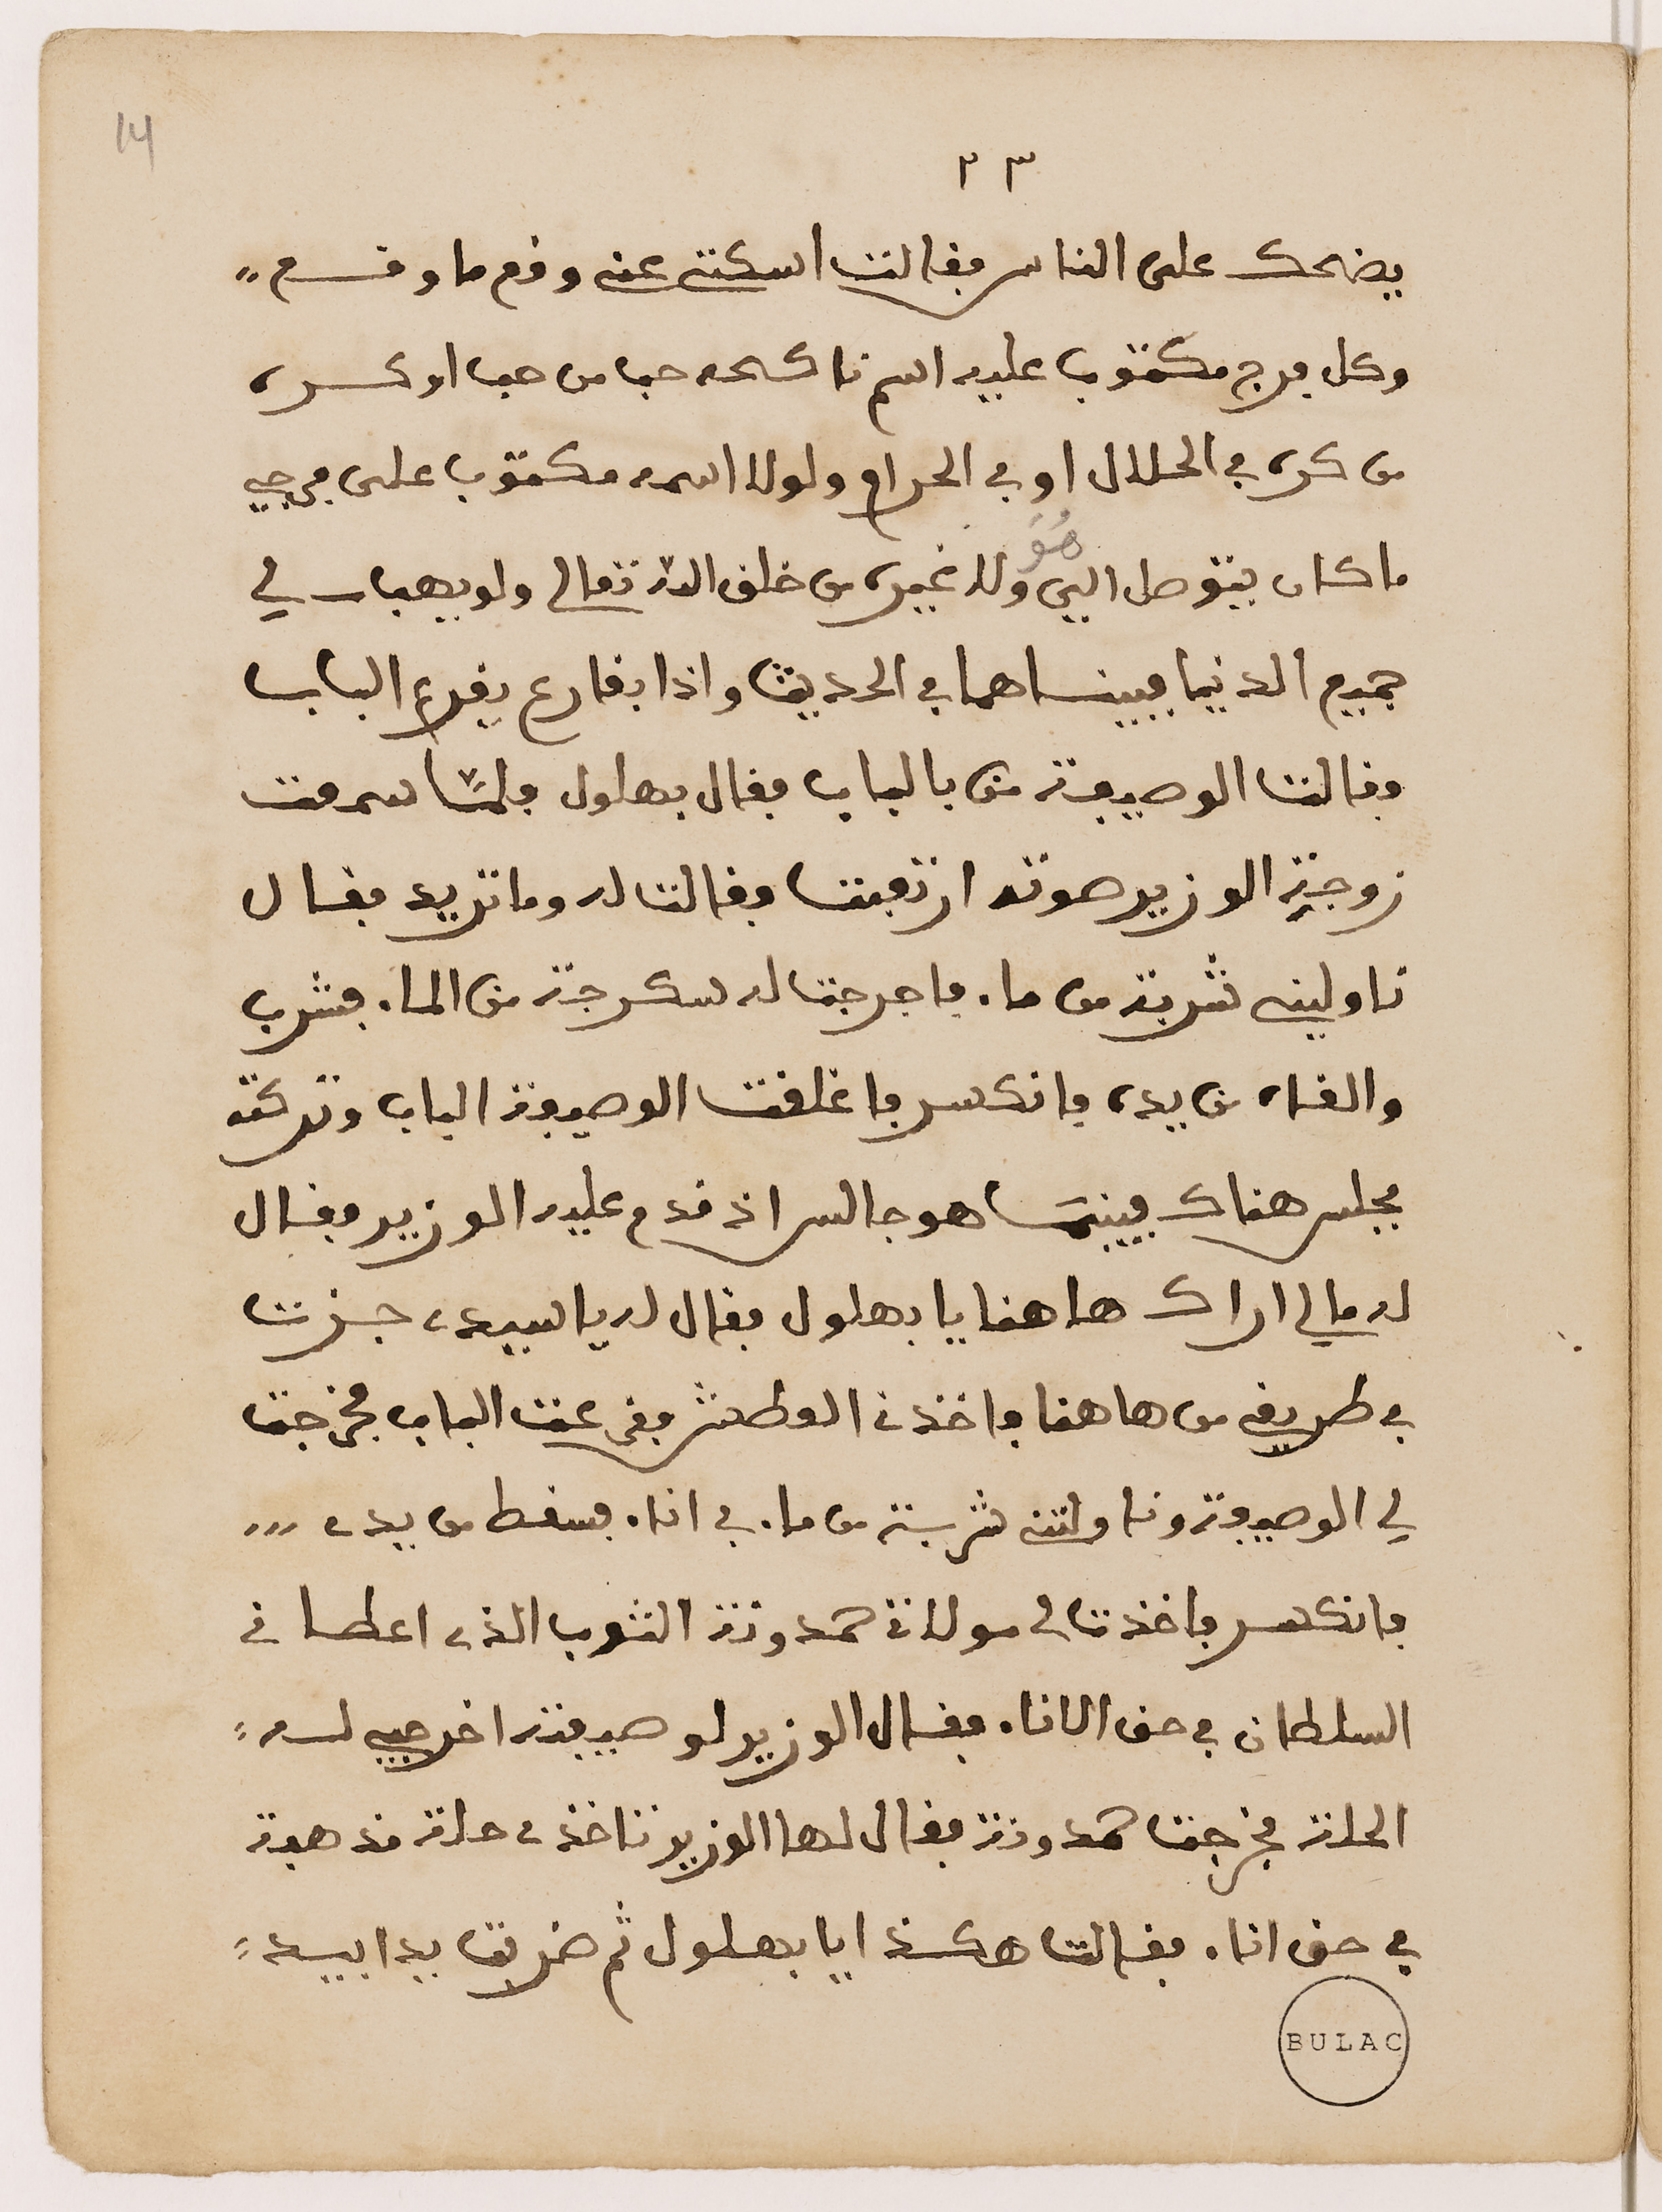 14
٢٣
يضحك على الناس فقالت اسكتي عني وقع ما وقـــع
وكل فرج مكتوب عليه اسم ناكحه حب من حب او كـــره
من كره في الحلال او في الحرام ولولا اسمه مكتوب على فرجي
هُوَ
ما كان يتوصل اليّ ولا غيره من خلق الله تعالى ولو يهب لي
جميع الدنيا فبينـــما هما في الحديث واذا بقارع يقرع الباب
فقالت الوصيفة من بالباب فقال بهلول فلمّا سمعت
زوجة الوزير صوته ارتعبت فقالت له وما تريد فقـــال
ناوليني شربة من ماء فاخرجت له سكرجة من الماء فشرب
والقاه من يده فانكسر فاغلقت الوصيفة الباب وتركته
فجلس هناك فبينمـــا هو جالس اذ قدم عليه الوزير فقـــال
له مالي اراك هاهنا يا بهلول فقال له يا سيدي جـــزت
في طريقي من هاهنا فاخذني العطش فقرعت الباب فخرجت
لي الوصيفة وناولتني شربـــة من ماء في اناء فسقط من يدي
فانكسر فاخذت لي مولاتي حمدونة الثوب الذي اعطـــاني
السلطان في حق الاناء فقـــال الوزير لوصيفته اخرجي لـــه
الحلة فخرجت حمدونة فقال لها الوزير تاخذي حلة مذهبة
في حق اناء فقـــالت هكـــذا يا بهـــلول ثم ضربت يدا بيـــد
BULAC